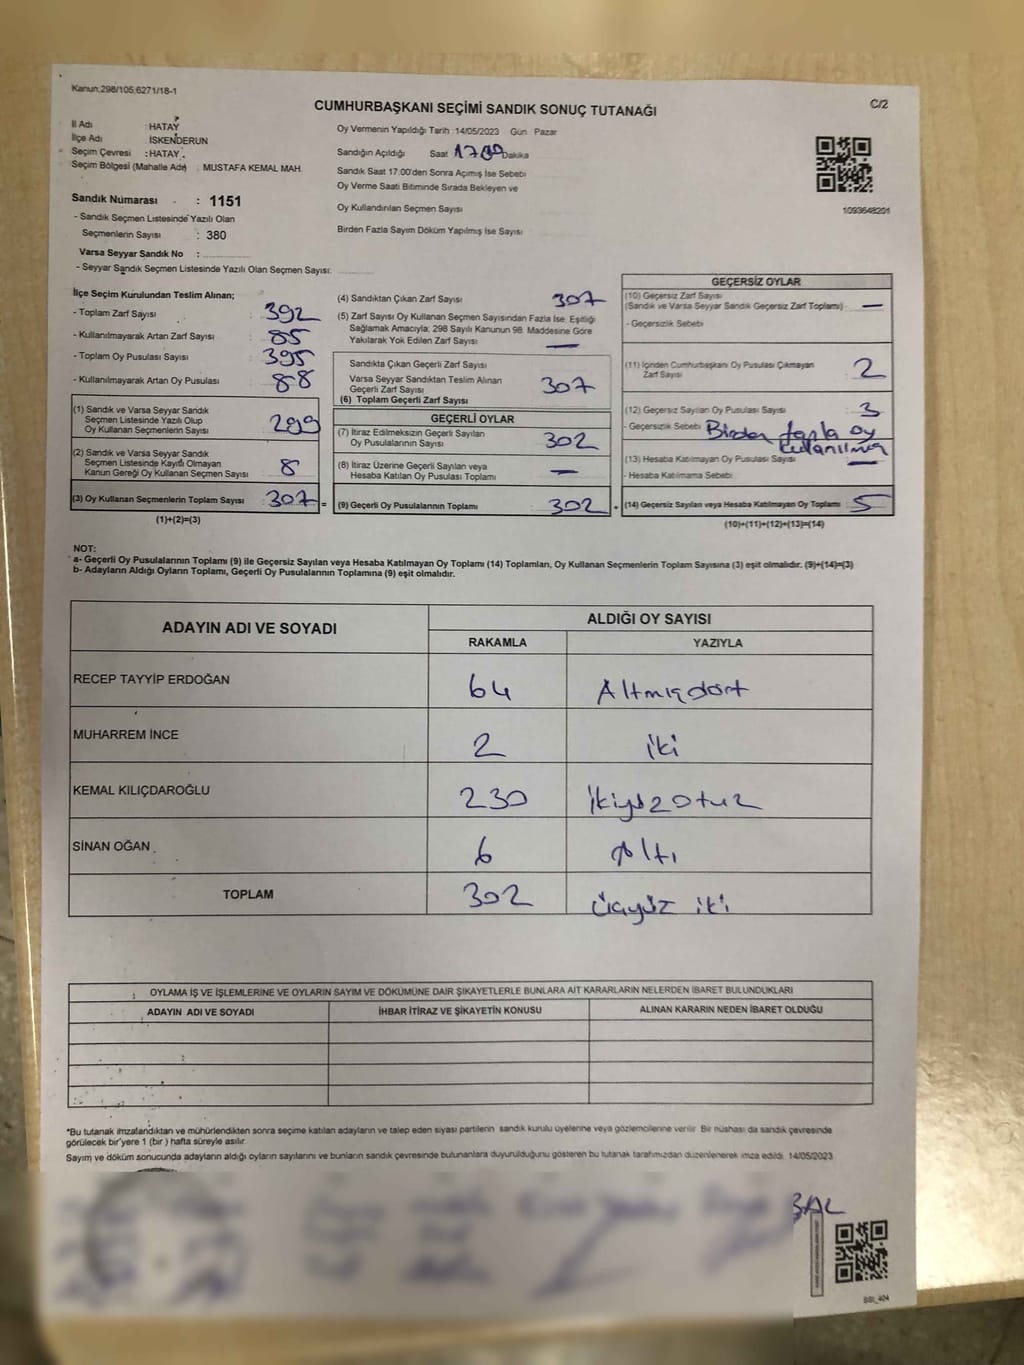 Kanun;298/105;6271/18-1
C/2
CUMHURBAŞKANI SEÇİMİ SANDIK SONUÇ TUTANAĞI
İl Adı : HATAY
İlçe Adı : İSKENDERUN
Seçim Çevresi : HATAY
Seçim Bölgesi (Mahalle Adı) : MUSTAFA KEMAL MAH.
Sandık Numarası : 1151
- Sandık Seçmen Listesinde Yazılı Olan
Seçmenlerin Sayısı : 380
Varsa Seyyar Sandık No :
- Seyyar Sandık Seçmen Listesinde Yazılı Olan Seçmen Sayısı:
Oy Vermenin Yapıldığı Tarih 14/05/2023 Gün Pazar
Sandığın Açıldığı Saat 1700 Dakika
Sandık Saat 17.00'den Sonra Açımış İse Sebebi
Oy Verme Saati Bitiminde Sırada Bekleyen ve
Oy Kullandırılan Seçmen Sayısı
Birden Fazla Sayım Döküm Yapılmış İse Sayısı
1093648201
İlçe Seçim Kurulundan Teslim Alınan;
- Toplam Zarf Sayısı : 392
- Kullanılmayarak Artan Zarf Sayısı : 85
- Toplam Oy Pusulası Sayısı : 395
- Kullanılmayarak Artan Oy Pusulası : 88
(1) Sandık ve Varsa Seyyar Sandık
Seçmen Listesinde Yazılı Olup
Oy Kullanan Seçmenlerin Sayısı : 299
(2) Sandık ve Varsa Seyyar Sandık
Seçmen Listesinde Kayıtlı Olmayan
Kanun Gereği Oy Kullanan Seçmen Sayısı : 8
(3) Oy Kullanan Seçmenlerin Toplam Sayısı : 307 =
(1)+(2)=(3)
(4) Sandıktan Çıkan Zarf Sayısı 307
(5) Zarf Sayısı Oy Kullanan Seçmen Sayısından Fazla İse, Eşitliği
Sağlamak Amacıyla; 298 Sayılı Kanunun 98. Maddesine Göre
Yakılarak Yok Edilen Zarf Sayısı —
Sandıkta Çıkan Geçerli Zarf Sayısı
Varsa Seyyar Sandıktan Teslim Alınan
Geçerli Zarf Sayısı
(6) Toplam Geçerli Zarf Sayısı 307
GEÇERLİ OYLAR
(7) İtiraz Edilmeksizin Geçerli Sayılan
Oy Pusulalarının Sayısı 302
(8) İtiraz Üzerine Geçerli Sayılan veya
Hesaba Katılan Oy Pusulası Toplamı —
(9) Geçerli Oy Pusulalarının Toplamı 302 +
GEÇERSİZ OYLAR
(10) Geçersiz Zarf Sayısı
(Sandık ve Varsa Seyyar Sandık Geçersiz Zarf Toplamı) —
- Geçersizlik Sebebi
(11) İçinden Cumhurbaşkanı Oy Pusulası Çıkmayan
Zarf Sayısı 2
(12) Geçersiz Sayılan Oy Pusulası Sayısı 3
- Geçersizlik Sebebi Birden fazla oy
kullanılmış
(13) Hesaba Katılmayan Oy Pusulası Sayısı —
- Hesaba Katılmama Sebebi
(14) Geçersiz Sayılan veya Hesaba Katılmayan Oy Toplamı 5
(10)+(11)+(12)+(13)=(14)
NOT:
a- Geçerli Oy Pusulalarının Toplamı (9) ile Geçersiz Sayılan veya Hesaba Katılmayan Oy Toplamı (14) Toplamları, Oy Kullanan Seçmenlerin Toplam Sayısına (3) eşit olmalıdır. (9)+(14)=(3)
b- Adayların Aldığı Oyların Toplamı, Geçerli Oy Pusulalarının Toplamına (9) eşit olmalıdır.
ADAYIN ADI VE SOYADI
ALDIĞI OY SAYISI
RAKAMLA YAZIYLA
RECEP TAYYİP ERDOĞAN 64 Altmışdört
MUHARREM İNCE 2 iki
KEMAL KILIÇDAROĞLU 230 ikiyüzotuz
SİNAN OĞAN 6 Altı
TOPLAM 302 üçyüz iki
OYLAMA İŞ VE İŞLEMLERİNE VE OYLARIN SAYIM VE DÖKÜMÜNE DAİR ŞİKAYETLERLE BUNLARA AİT KARARLARIN NELERDEN İBARET BULUNDUKLARI
ADAYIN ADI VE SOYADI İHBAR İTİRAZ VE ŞİKAYETİN KONUSU ALINAN KARARIN NEDEN İBARET OLDUĞU
*Bu tutanak imzalandıktan ve mühürlendikten sonra seçime katılan adayların ve talep eden siyasi partilerin sandık kurulu üyelerine veya gözlemcilerine verilir. Bir nüshası da sandık çevresinde
görülecek bir yere 1 (bir ) hafta süreyle asılır.
Sayım ve döküm sonucunda adayların aldığı oyların sayılarını ve bunların sandık çevresinde bulunanlara duyurulduğunu gösteren bu tutanak tarafımızdan düzenlenerek imza edildi. 14/05/2023
BAL